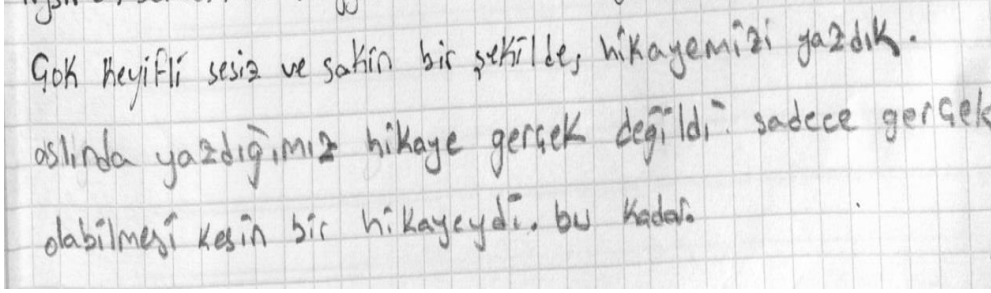 Çok keyifli sesiz ve sakin bir şekilde, hikayemizi yazdık.
aslında yazdığımız hikaye gerçek değildi. sadece gerçek
olabilmesi kesin bir hikayeydi. bu kadar.